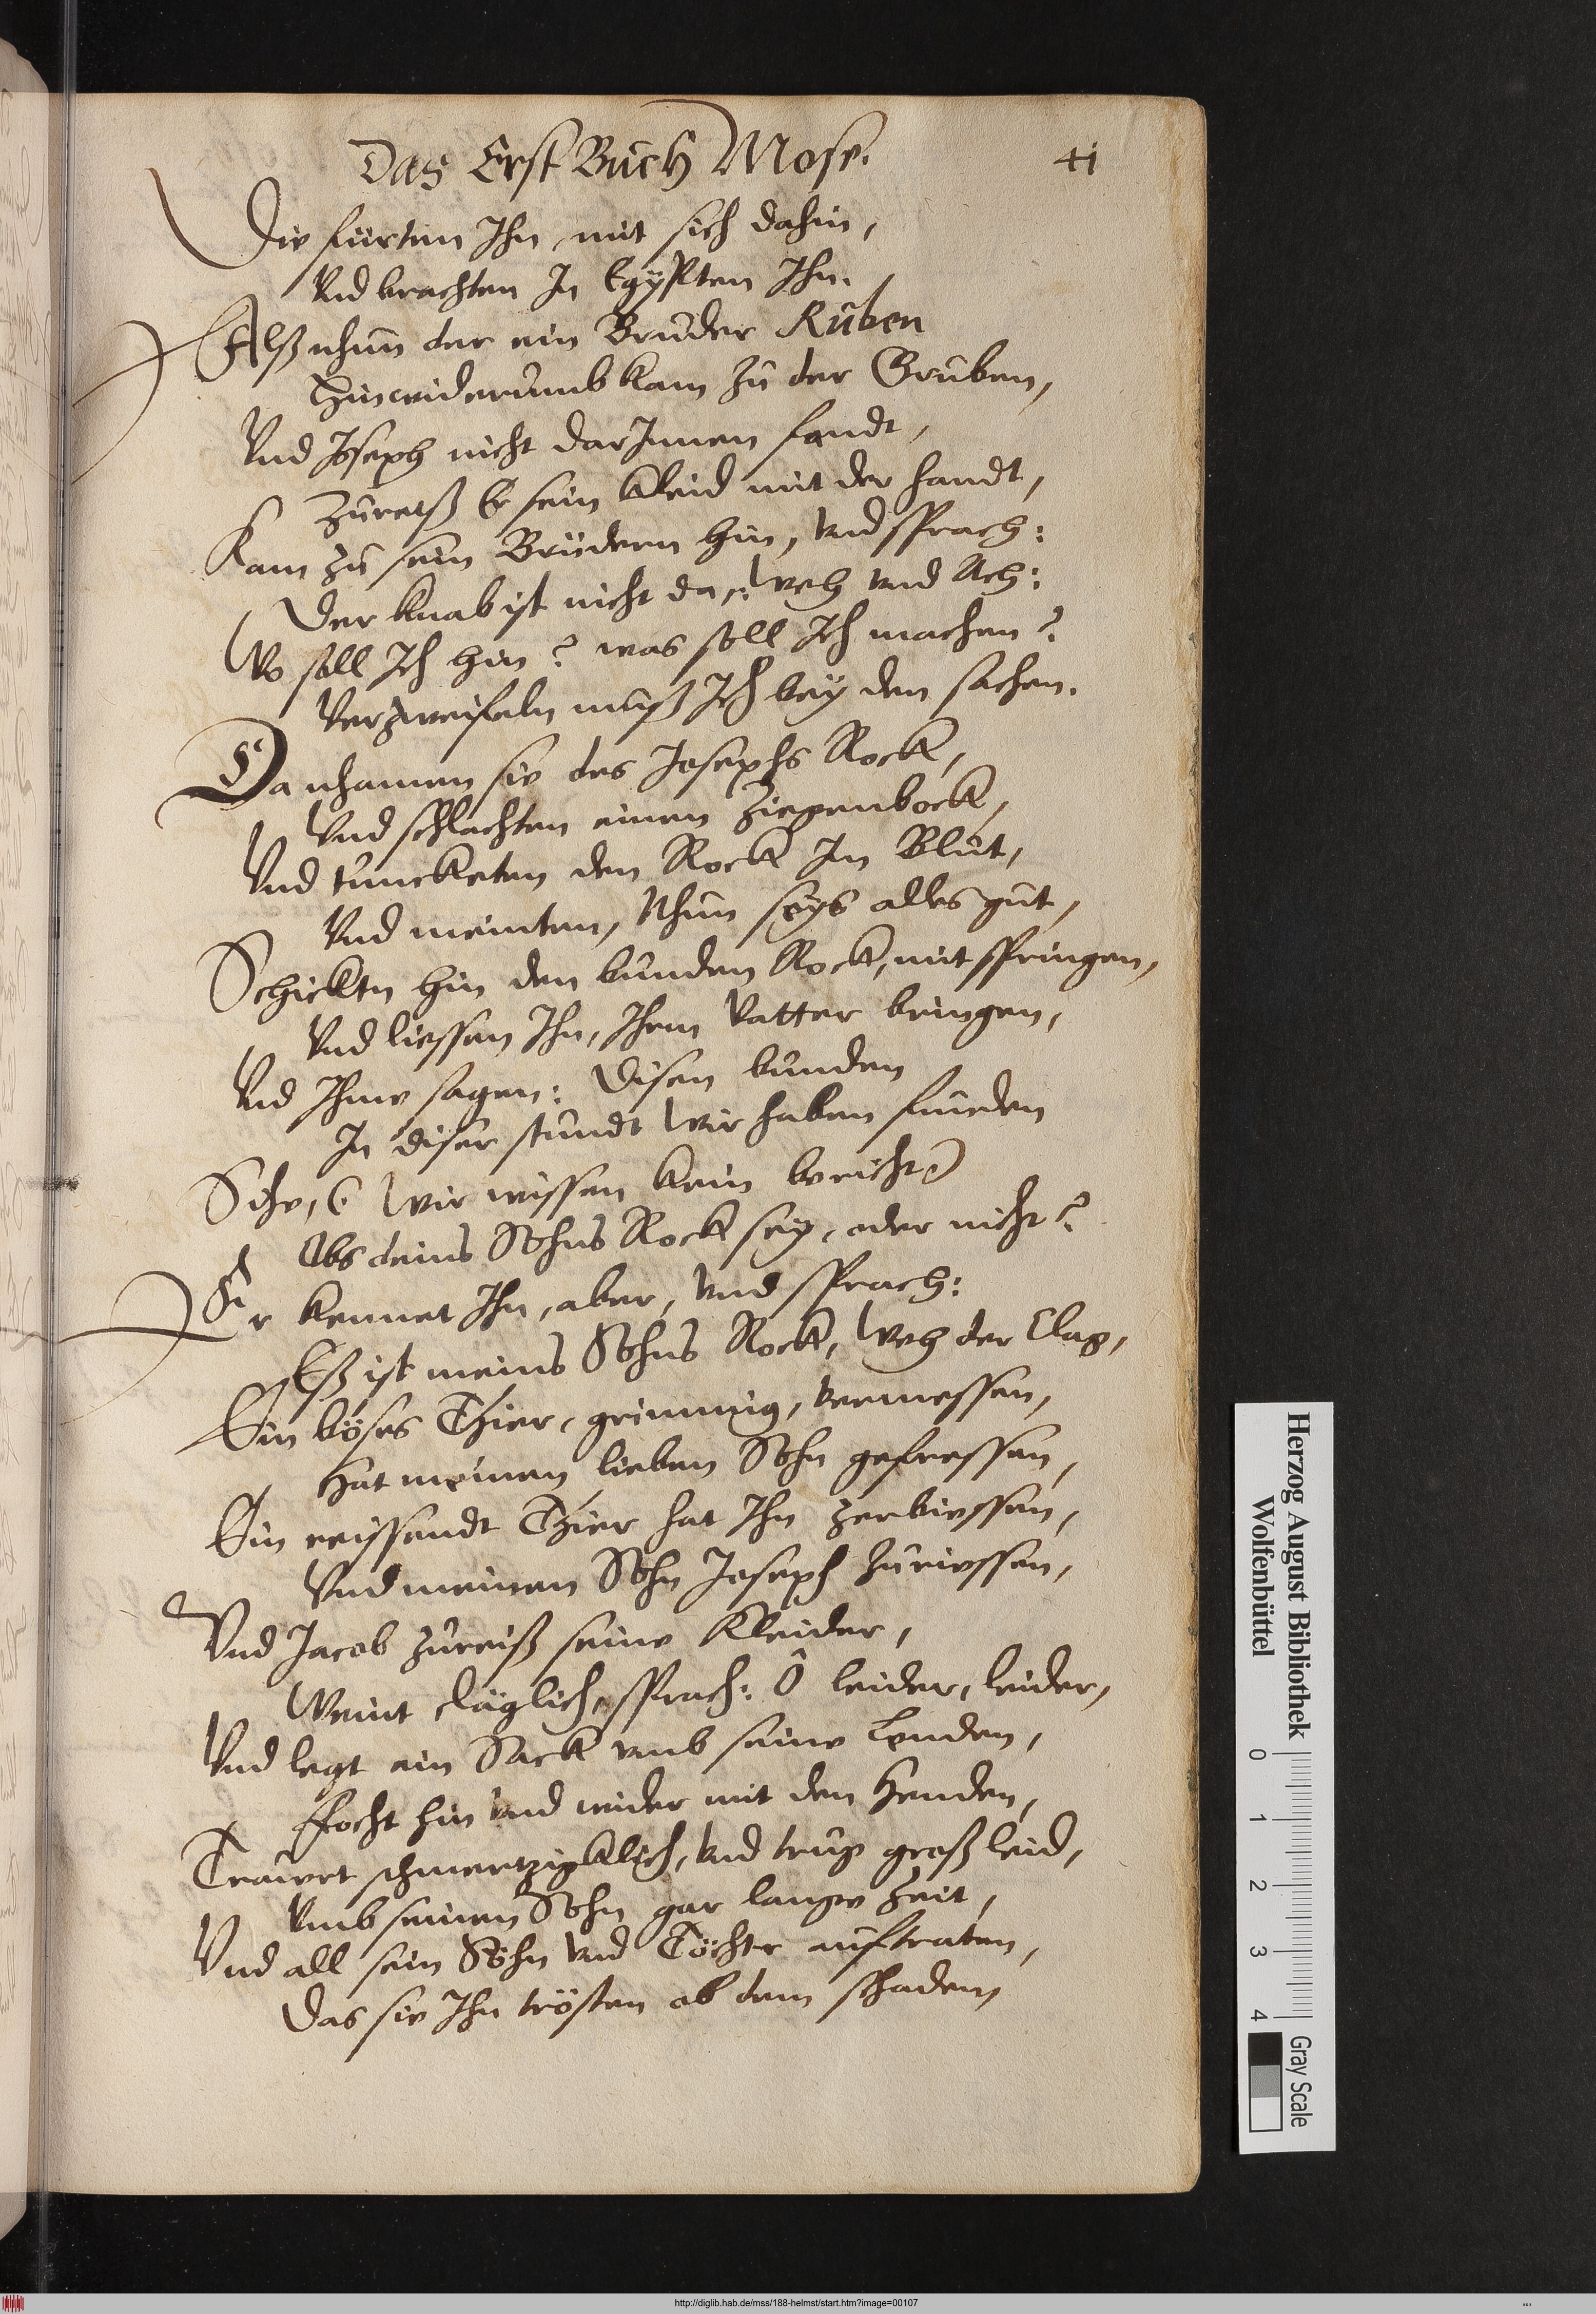 Das Erst Buch Mose.
41
Die fürten Ihn, mit sich dahin,
Vnd brachten In Egÿpten Ihn.
Alß nhun der ein Bruder Růben
Hinwiderumb kam zu der Gruben,
Vnd Joseph nicht darInnen fandt,
Zureiß Er sein kleid mit der handt,
Kam zu sein Brüdern hin, vnd sprach:
Der knab ist nicht da, weh vnd Ach:
Wo soll Ich hin? was soll Ich machen?
Verzweifeln muß Ich beÿ den sachen.
Da nhamen sie des Josephs Rock,
Vnd schlachten einen Ziegenbock,
Vnd tuncketen den Rock In Blut,
Vnd meinten, Nhun seÿs alles gut,
Schicktn hin den bunden Rock, mit springen,
Vnd liessen Ihn, Ihrm Vatter bringen,
Vnd Ihme sagen: Disen bunden
In diser stundt Wir haben funden
Sihe, (Wir wissen kein bericht)
Obs deins Sohns Rock seÿ, oder nicht?
Er kennet Ihn, aber, vnd sprach:
Eß ist meins Sohns Rock, Weh der Clag,
Ein böses Thier, grimmig, vermessen,
Hat meinen lieben Sohn gefressen,
Ein reissendt Thier hat Ihn zerbiessen,
Vnd meinen Sohn Joseph zuriessen,
Vnd Jacob zureiß seine Kleider,
Weint cläglich, sprach: Ô leider, leider,
Vnd legt ein Sack vmb seine Lenden,
Focht hin vnd wider mit den Henden,
Trauret schmertzigklich, vnd trug groß leid,
Vmb seinen Sohn gar lange Zeit,
Vnd all sein Söhn vnd Töchter aufftraten,
Das sie Ihn trösten ob dem schaden,
Herzog August Bibliothek
Wolfenbüttel
0 1 2 3 4
Gray Scale
http://diglib.hab.de/mss/188-helmst/start.htm?image=00107